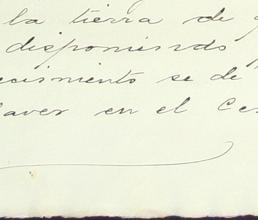 la tierra de
disponiendo
ecimiento se de
laver en el Ce